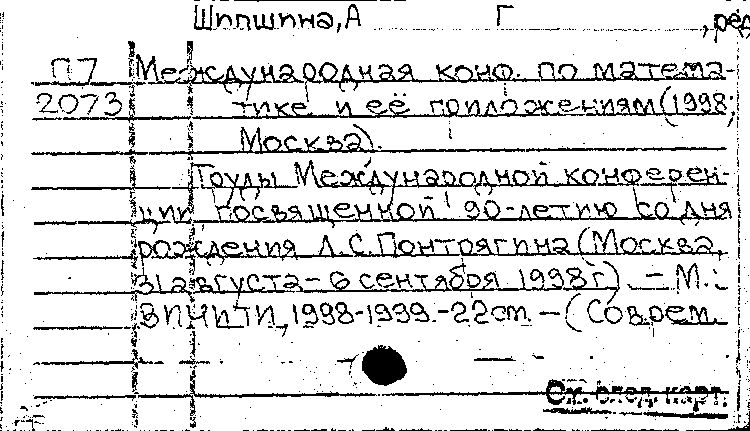 Шипшина, А Г , ред
П7 Международная конф. по матема-
2073 тике и её приложениям (1998;
Москва).
Труды Международной конферен-
ции посвященной 90-летию со дня
рождения Л.С.Понтрягина (Москва,
31 августа - 6 сентября 1998г.). - М.:
ВИНИТИ, 1998-1999. - 22см. - (Соврем.
См. след. карт.